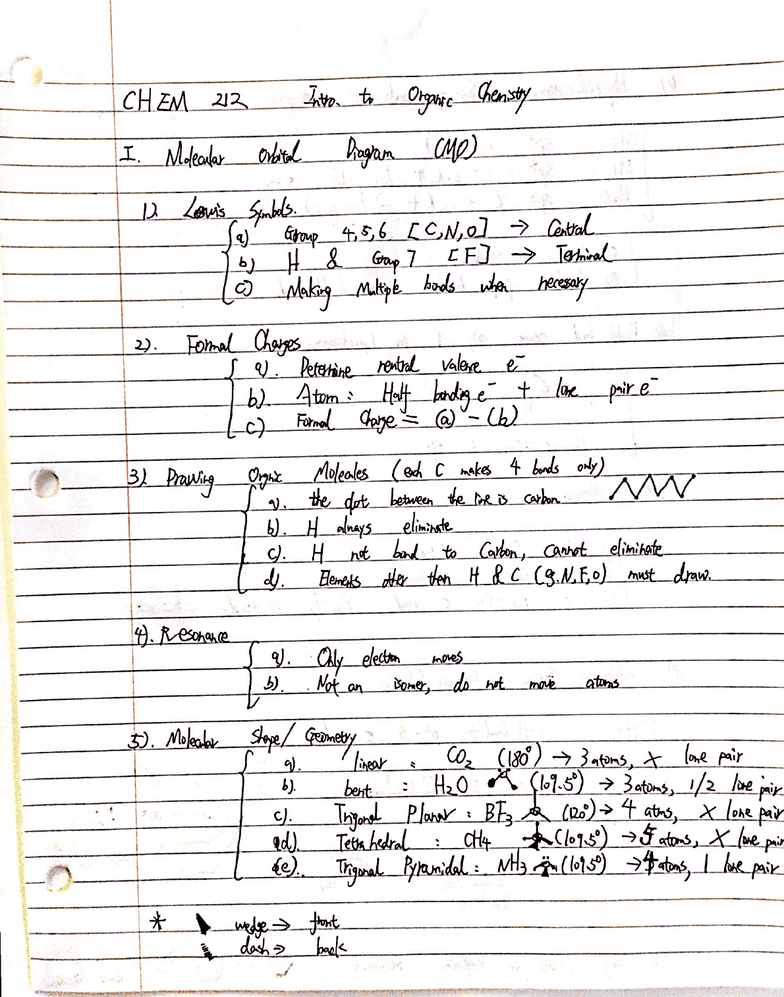 CHEM 212 Intro. to Organic Chemistry
I. Molecular Orbital Diagram (MO)
1). Lewis Symbols.
a) Group 4,5,6 [C,N,O] → Central
b) H & Group 7 [F] → Terminal
c) Making Multiple bonds when necessary
2). Formal Charges
a). Determine neutral valence e⁻
b). Atom: Half bonding e⁻ + lone pair e⁻
c) Formal Charge = (a) - (b)
3). Drawing Organic Molecules (each C makes 4 bonds only)
a). the dot between the line is carbon
b). H always eliminate
c). H not bond to Carbon, cannot eliminate
d). Elements other then H & C (g. N, F, O) must draw.
4). Resonance
a). Only electron moves
b). Not an isomer, do not move atoms
5). Molecular Shape/ Geometry
a). linear : CO₂ (180°) → 3 atoms, X lone pair
b). bent : H₂O (109.5°) → 3 atoms, 1/2 lone pair
c). Trigonal Planar : BF₃ (120°) → 4 atms, X lone pair
d). Tetrahedral : CH4 (109.5°) → 5 atoms, X lone pair
e). Trigonal Pyramidal : NH₃ (109.5°) → 4 atoms, 1 lone pair
* wedge → front
dash → back